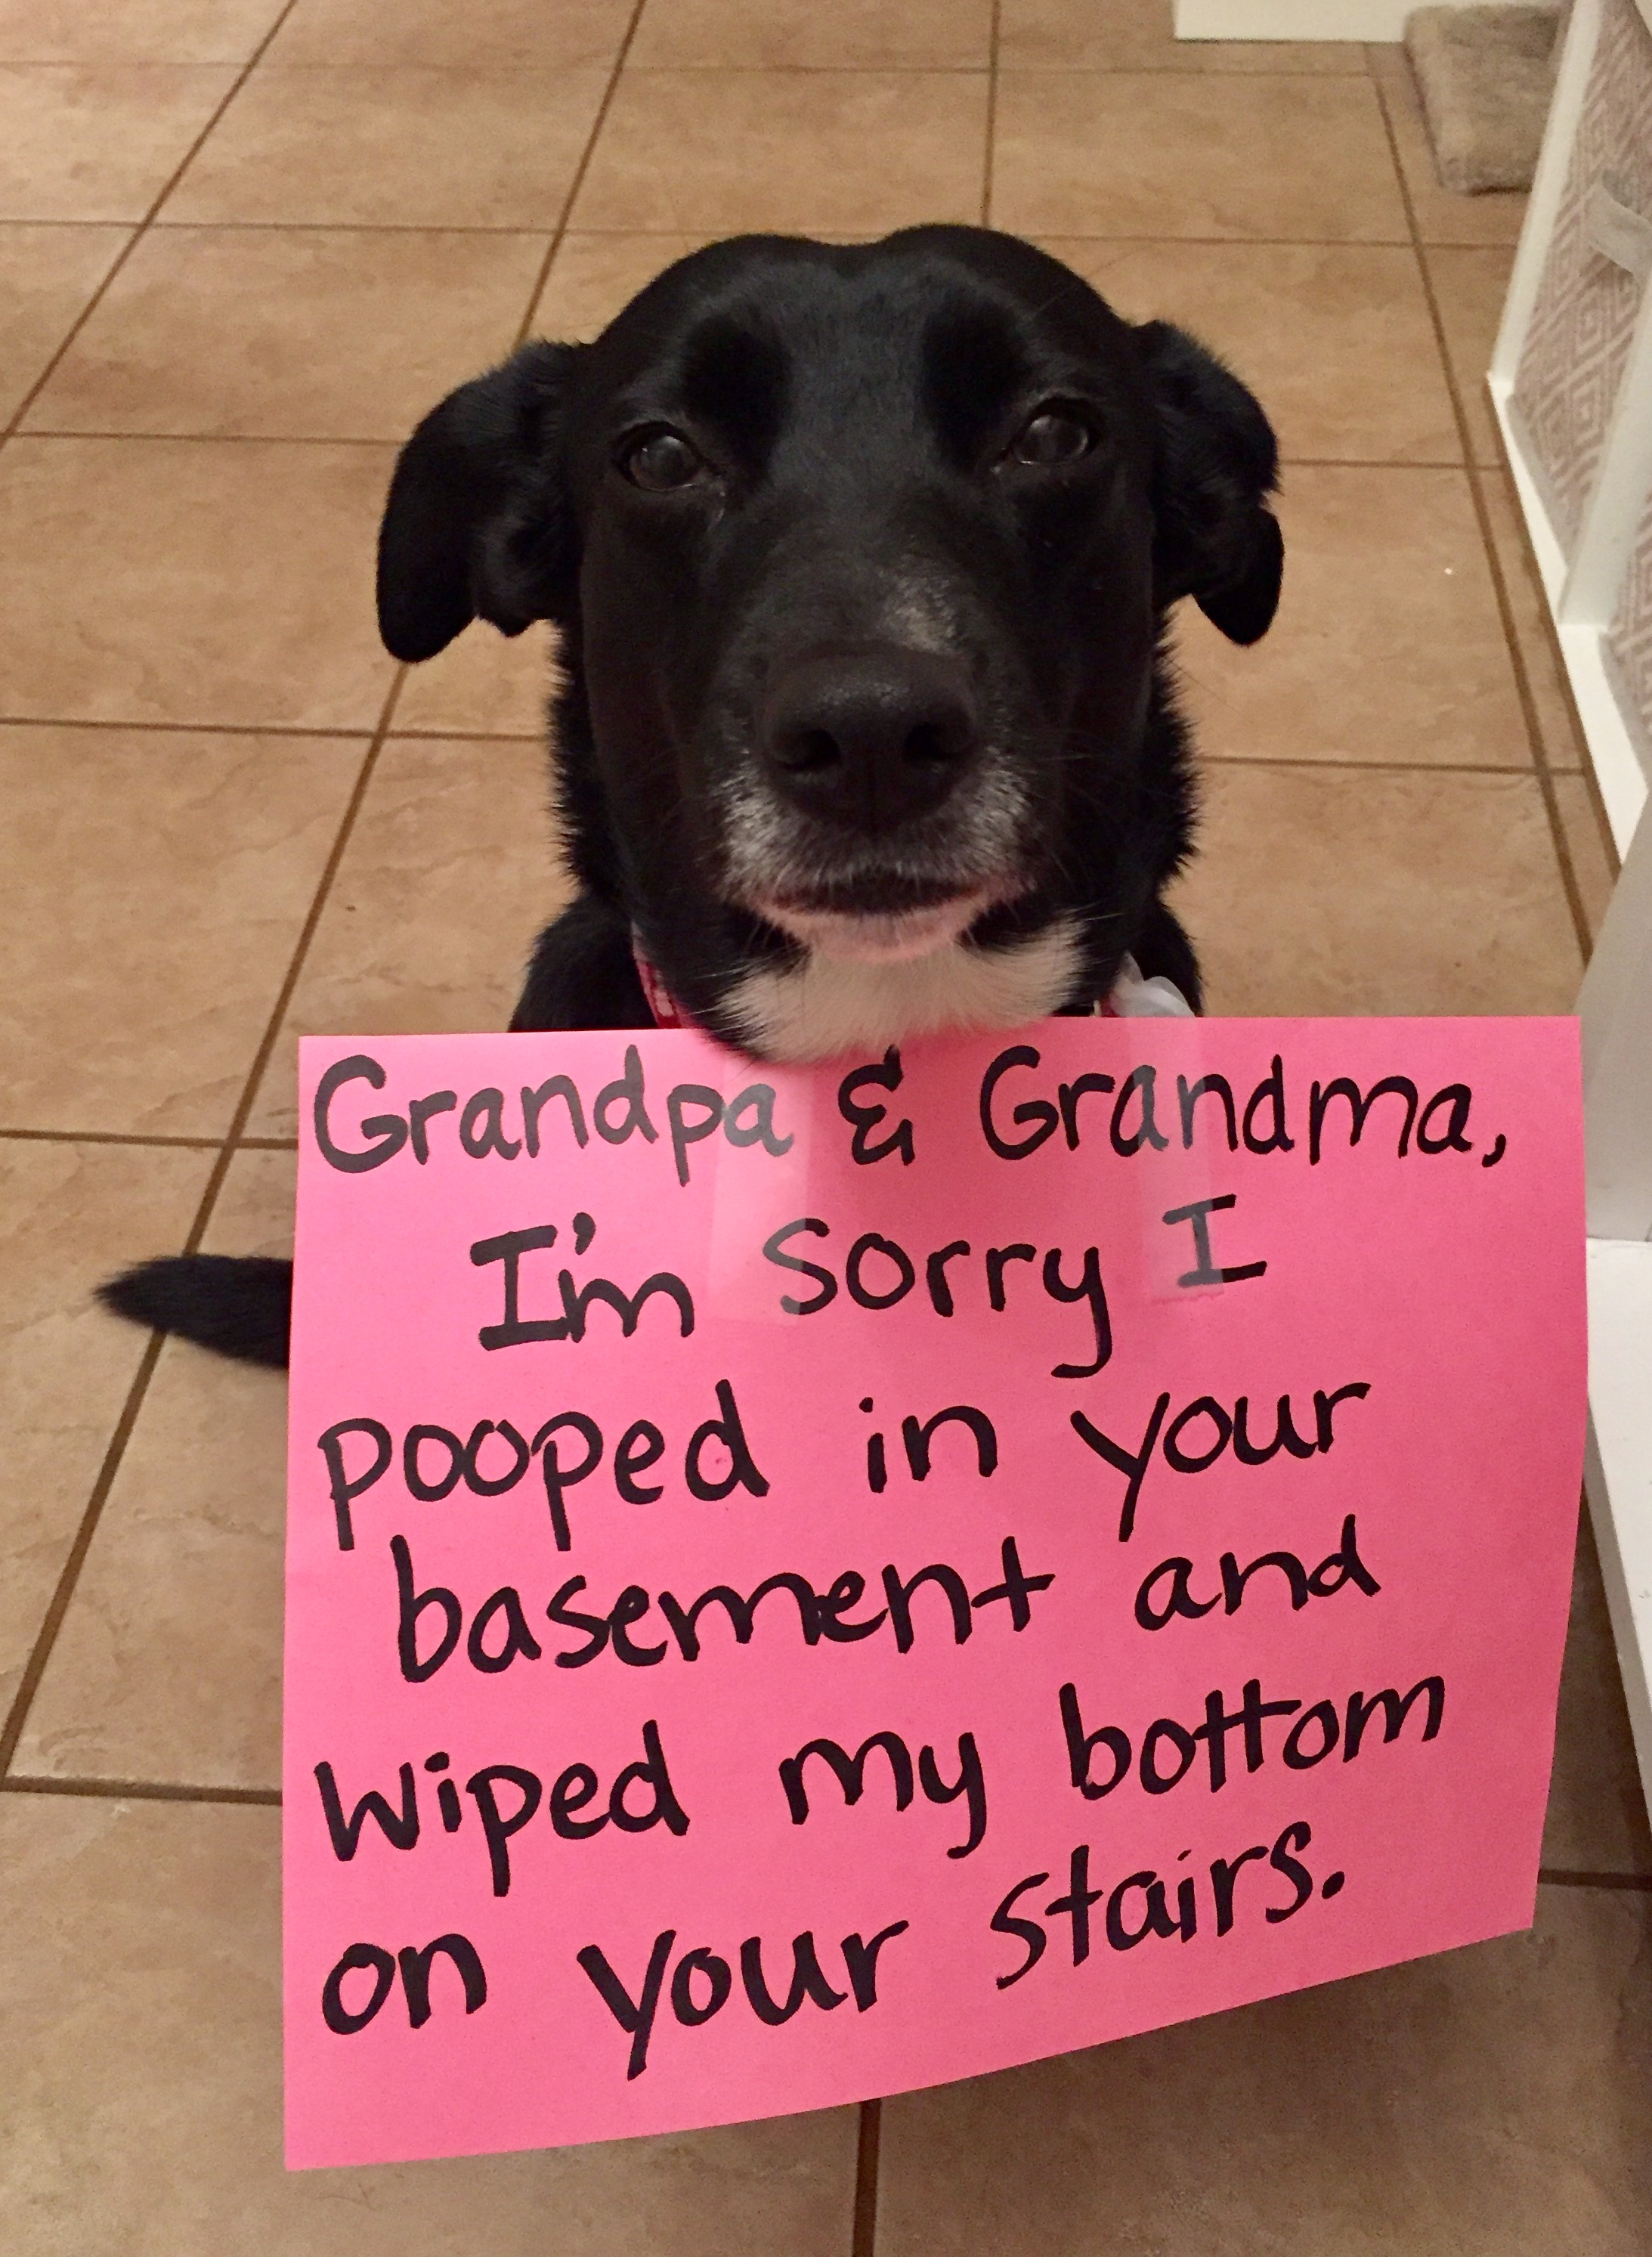 Grandpa & Grandma,
I'm sorry I
pooped in your
basement and
wiped my bottom
on your stairs.